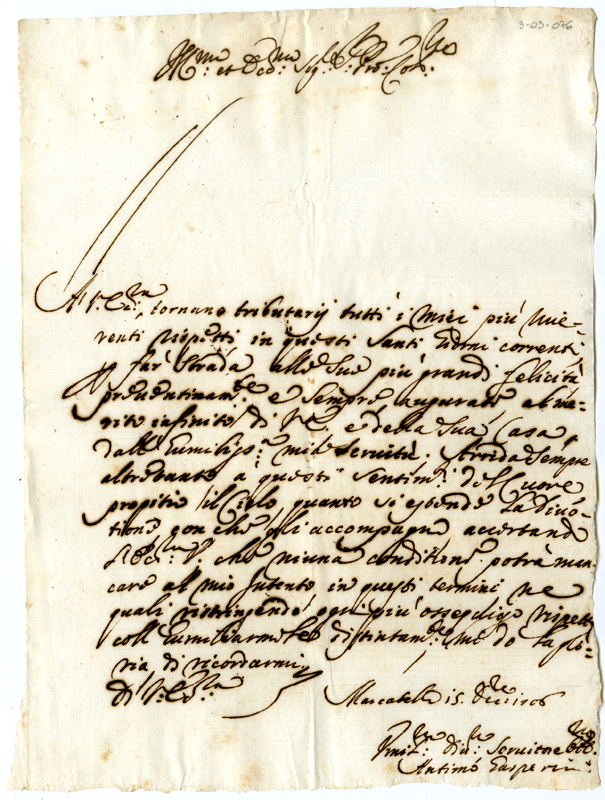 3-03-076
Ill.mo et Ecc.mo Sig.re Pro. Col.mo
A V. Ecc.za tornano tributarij tutti i miei più rive-
renti rispetti in questi Santi Giorni correnti,
P far strada alle sue più grandi felicità
e sempre augurate al me-
rito infinito di V. E. e della Sua Casa,
dall' Humiliss.a mia Servitù. Arrida sempre
altretanto a questi sentim.i del Cuore
propitio il Cielo, quanto si estende la divo-
tione con che gli accompagno accertando
che niuna conditione potrà man-
care al mio Intento in questi termini ne
quali ristringendo ogni più ossequioso rispetto
coll' Humiliarmele distintam.e mi do la glo-
ria di ricordarmi
Di V. Ecc.za
Mercatello 15. 1706
Humil.mo Servitore
Antimo Gasperini